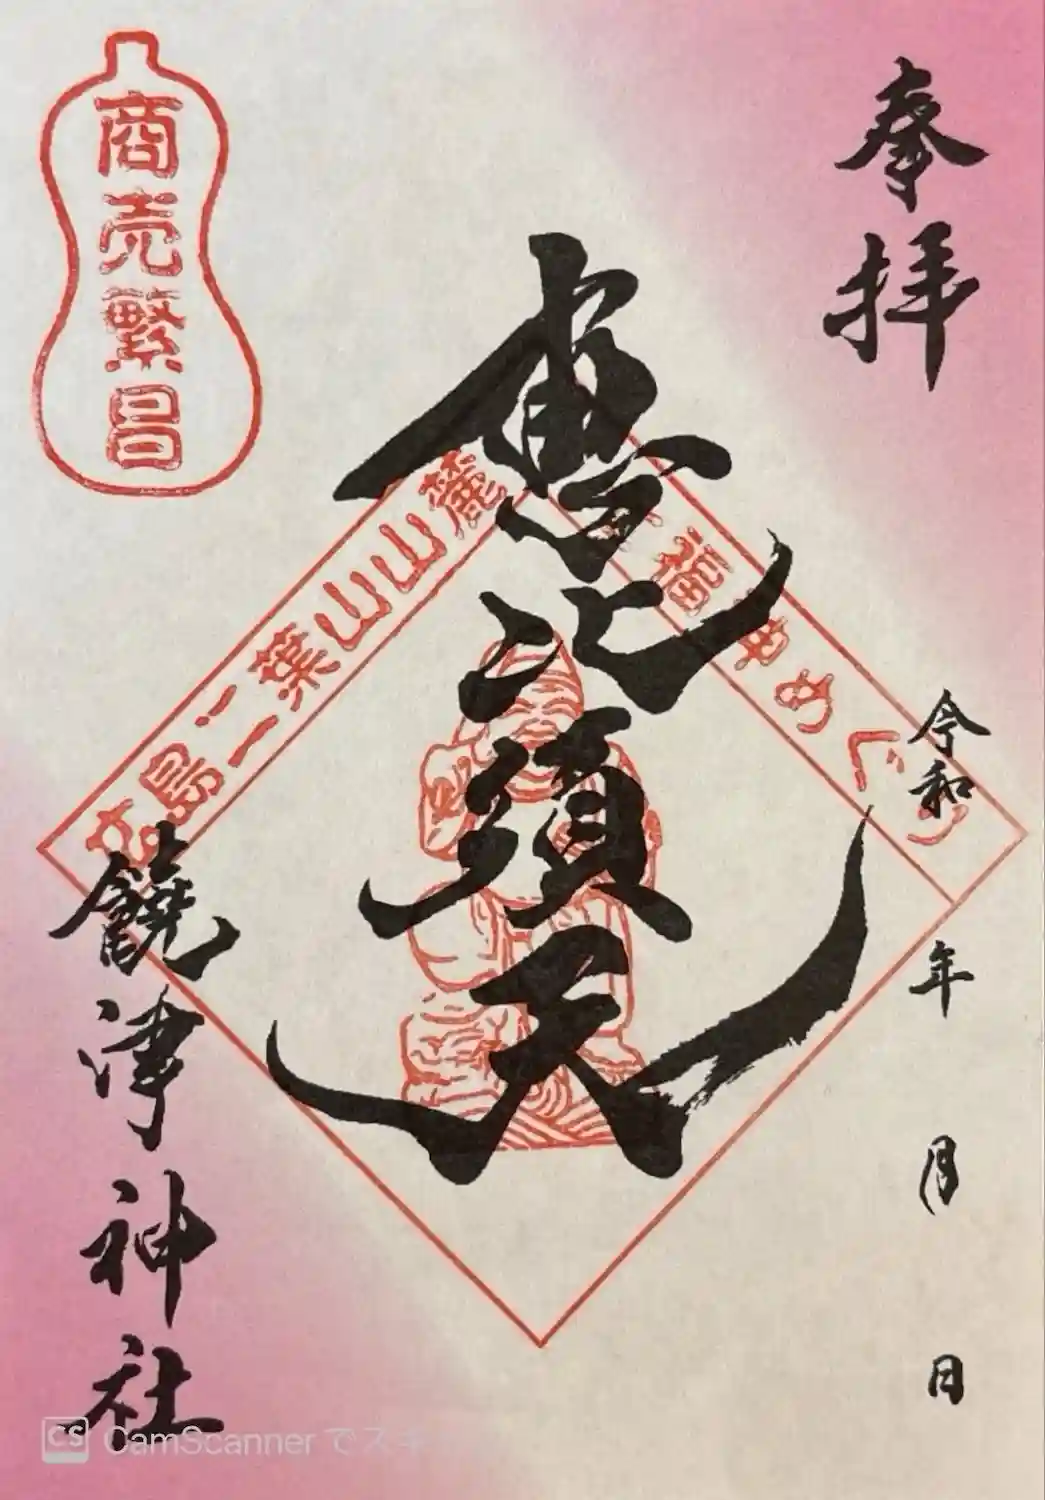 奉拝
令和 年 月 日
恵比須天
福神めぐり
広島二葉山山麓
商売繁昌
饒津神社
CS CamScanner でスキ